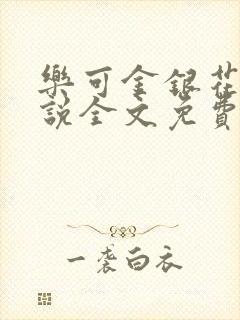 樂可金銀花
說全文免費
一袭白衣